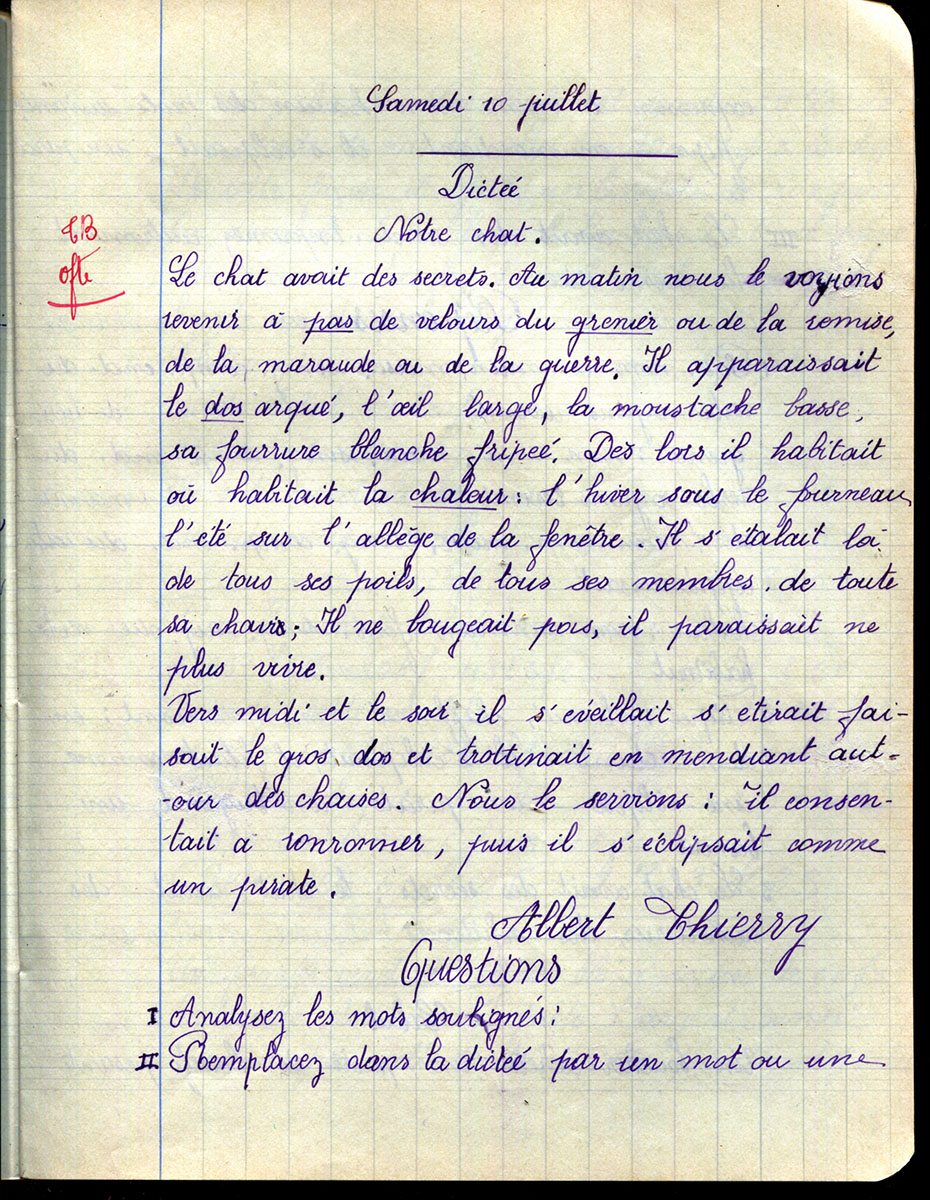 Samedi 10 juillet
Dicteé
Notre chat.
TB
0fte
Le chat avait des secrets. Au matin nous le voyions
revenir à pas de velours du grenier ou de la remise,
de la maraude ou de la guerre. Il apparaissait
le dos arqué, l'œil large, la moustache basse,
sa fourrure blanche fripeé. Dès lors il habitait
où habitait la chaleur : l'hiver sous le fourneau
l'été sur l'allège de la fenêtre. Il s'étalait là.
de tous ses poils, de tous ses membres. de toute
sa chair; Il ne bougeait pas, il paraissait ne
plus vivre.
Vers midi et le soir il s'éveillait s'etirait fai-
sait le gros dos et trottinait en mendiant aut-
-our des chaises. Nous le servions : il consen-
tait a ronronner, puis il s'éclipsait comme
un pirate.
Albert Thierry
Questions
I Analysez les mots soulignés :
II Remplacez dans la dicteé par un mot ou une